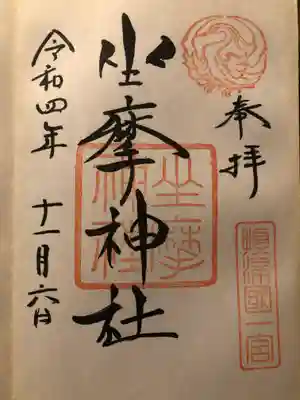 奉拝
摂津国一宮
坐摩神社
坐摩神社
令和四年
十一月六日